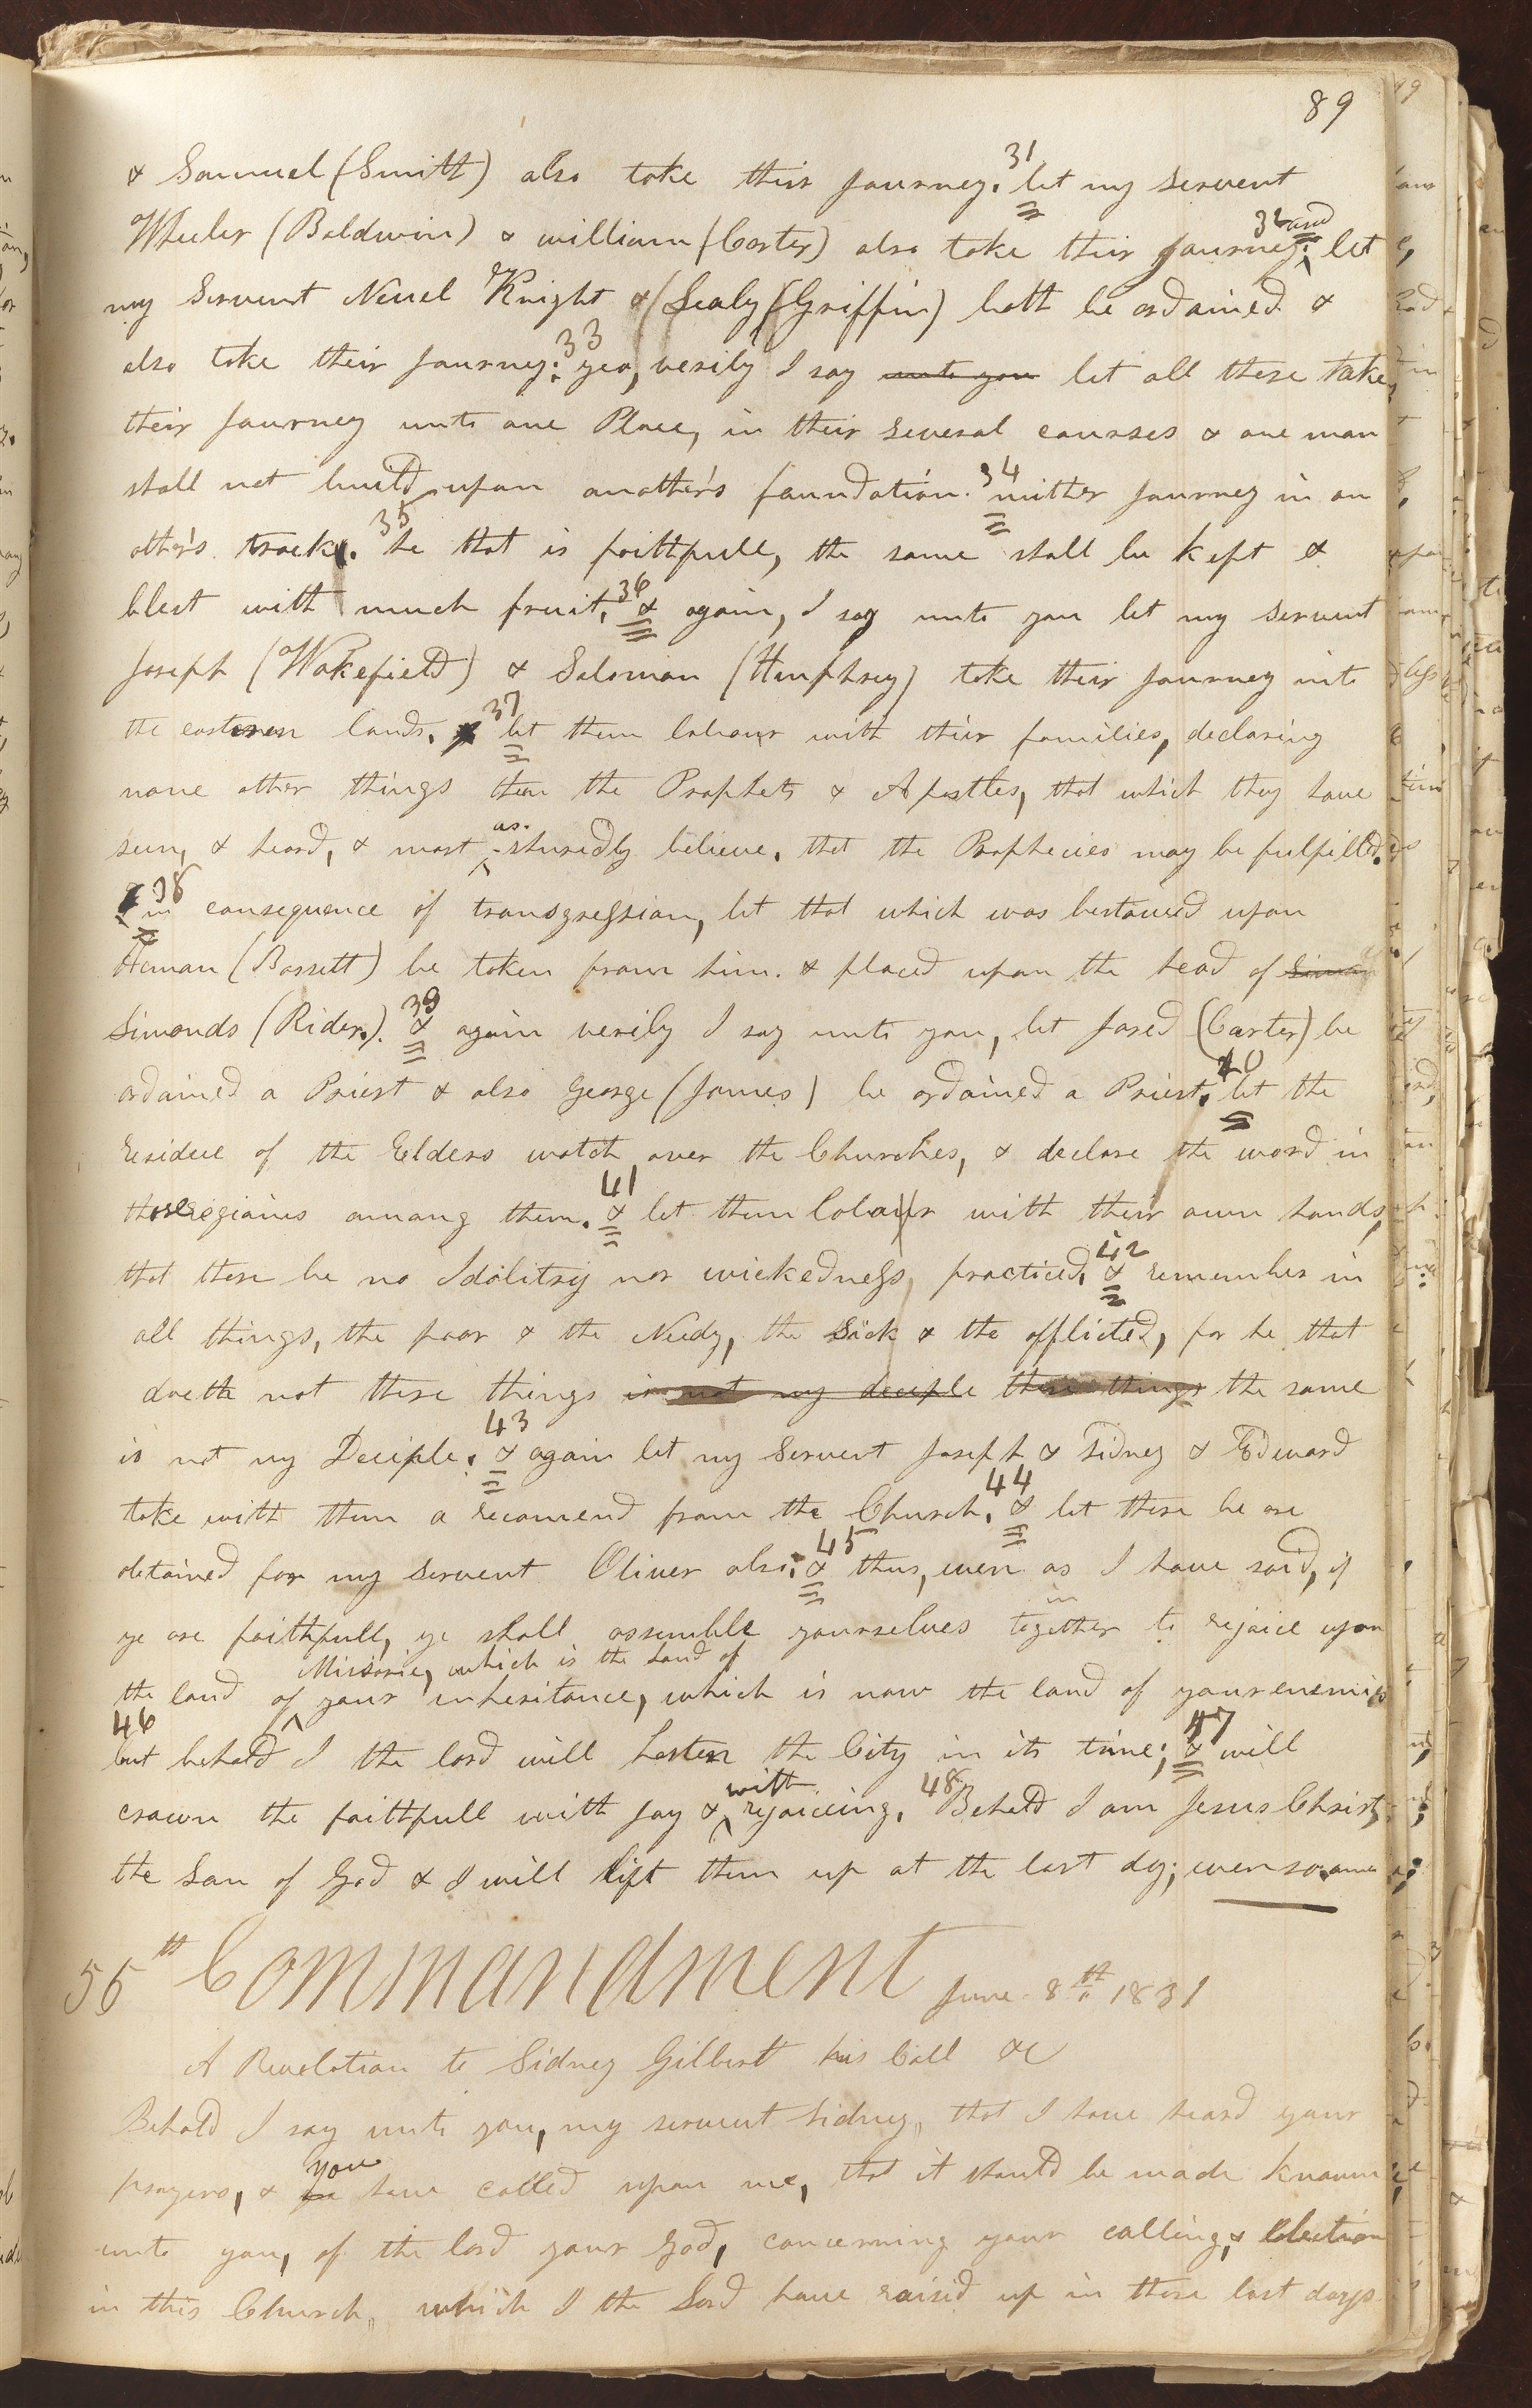 89
& Samuel (Smith) also take their Journey. 31 let my servent
Wheeler (Baldwin) & william (Carter) also take their Journey. 32 and let
my Servent Newel Knight & (Sealy (Griffin) both be ordained &
also take their Journey. 33 yea, verily I say unto you let all these take
their Journey unto one Place, in their several courses & one man
shall not build upon another's foundation. 34 neither Journey in an
other's track. 35 he that is faithfull, the same shall be kept &
blest with much fruit. 36 & again, I say unto you let my servent
Joseph (Wakefield) & Solomon (Humphrey) take their Journey into
the eastern lands. 37 let them labour with their families, declaring
none other things than the Prophets & Apostles, that which they have
seen, & heard, & most as-shuredly believe. that the Prophecies may be fulfilled.
38 in consequence of transgression, let that which was bestowed upon
Heman (Bassett) be taken from him. & placed upon the head of Simon
Simonds (Rider.). 39 & again verily I say unto you, let Jared (Carter) be
ordained a Priest & also George (James) be ordained a Priest. 40 let the
residue of the Elders watch over the Churches, & declare the word in
those regions among them. 41 & let them labour with their own hands,
that there be no Idolitry nor wickedness practiced. 42 & remember in
all things, the poor & the Needy, the Sick & the afflicted, for he that
doeth not these things is not my deciple these things the same
is not my Deciple. 43 & again let my Servent Joseph & Sidney & Edward
take with them a recomend from the Church. 44 & let there be one
obtained for my servent Oliver also. 45 & thus, even as I have said, if
ye are faithfull, ye shall assemble yourselves together to rejoice upon
Missorie, which is the Land of
the land of your inheritance, which is now the land of your enemies
46 but behold I the lord will hasten the City in its time; 47 & will
crown the faithfull with Joy & with rejoiceing. 48 Behold I am Jesus Christ,
the Son of God & I will lift them up at the last dy; even so. amen
55th Commandment June 8th 1831
A Revelation to Sidney Gilbert his Call &c
Behold I say unto you, my servent Sidney, that I have heard your
prayers, & ye you have called upon me, that it should be made known
unto you, of the lord your God, concerning your calling, & Election
in this Church, which I the Lord have raised up in these last days